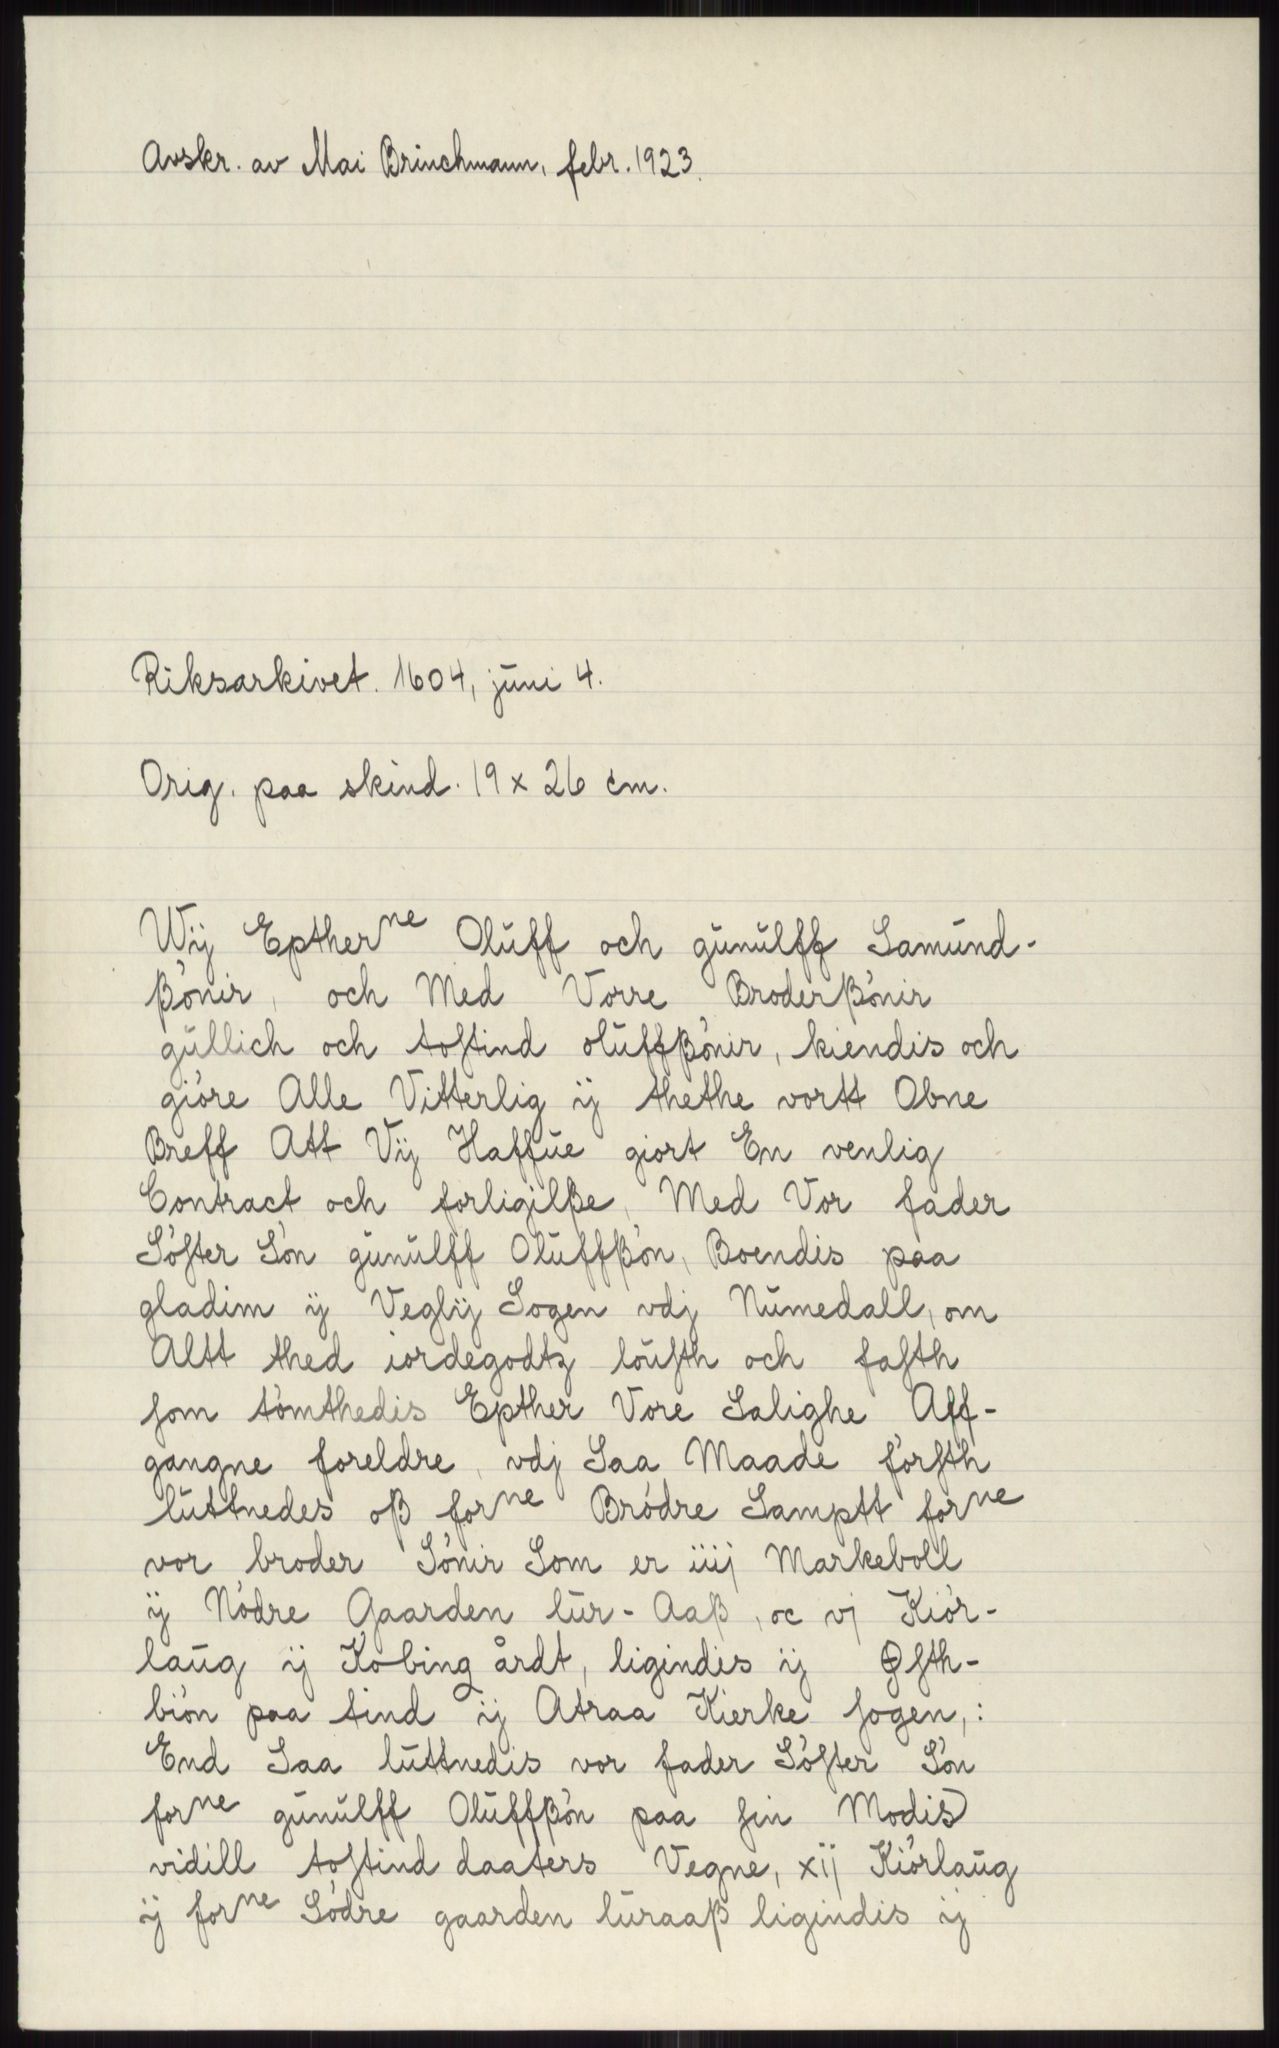 Avskr. av Mai Brinchmann, febr. 1923.
Riksarkivet. 1604, juni 4.
Orig. paa skind. 19 x 26 cm.
Wij Epther^ne Oluff och gunulff Samund-
ßönir, och Med Vorre Broderßönir
gullich och toſtind oluffßönir, kiendis och
giöre Alle Vitterlig ij thethe vortt Obne
Breff Att Vij Haffue giort En venlig
Contract och forligilße, Med Vor fader
Söſter Sön gunulff Oluffßön, Boendis paa
gladim ij Veglij Sogen vdj Numedall, om
Altt thed iordegodtz löuſth och faſth
ſom tömthedis Epther Vore Salighe Aff-
gangne foreldre, vdj Saa Maade förſth
luttnedes oß for^ne Brödre Samptt for^ne
vor broder Sönir Som er iiij Markeboll
ij Nödre Gaarden lur-Aaß, oc vj Kiör-
laug ij Kobing årdt, ligindis ij Øſth-
biön paa tind ij Atraa Kierke ſogen,:
End Saa luttnedis vor fader Söſter Sön
for^ne gunulff Oluffßön paa ſin Modis
vidill toſtind daaters Vegne, xij Kiörlaug
ij for^ne Södre gaarden luraaß ligindis ij